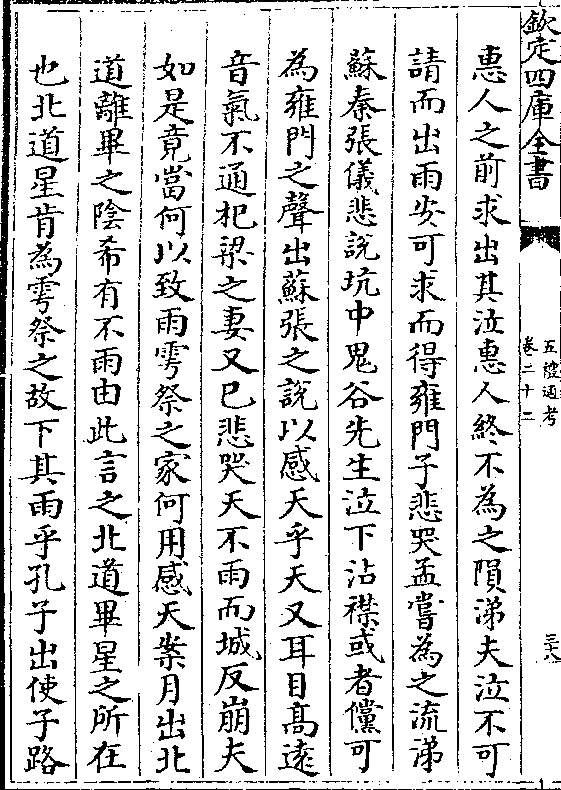 欽定四庫全書
五禮通考
卷二十二
三十八
惠人之前求出其泣惠人終不為之隕涕夫泣不可
請而出雨安可求而得雍門子悲哭孟嘗為之流涕
蘇秦張儀悲說坑中鬼谷先生泣下沾襟或者儻可
為雍門之聲出蘇張之說以感天乎天又耳目髙逺
音氣不通杞梁之妻又已悲哭天不雨而城反崩夫
如是竟當何以致雨雩祭之家何用感天案月出北
道離畢之陰希有不雨由此言之北道畢星之所在
也北道星肯為雩祭之故下其雨乎孔子出使子路